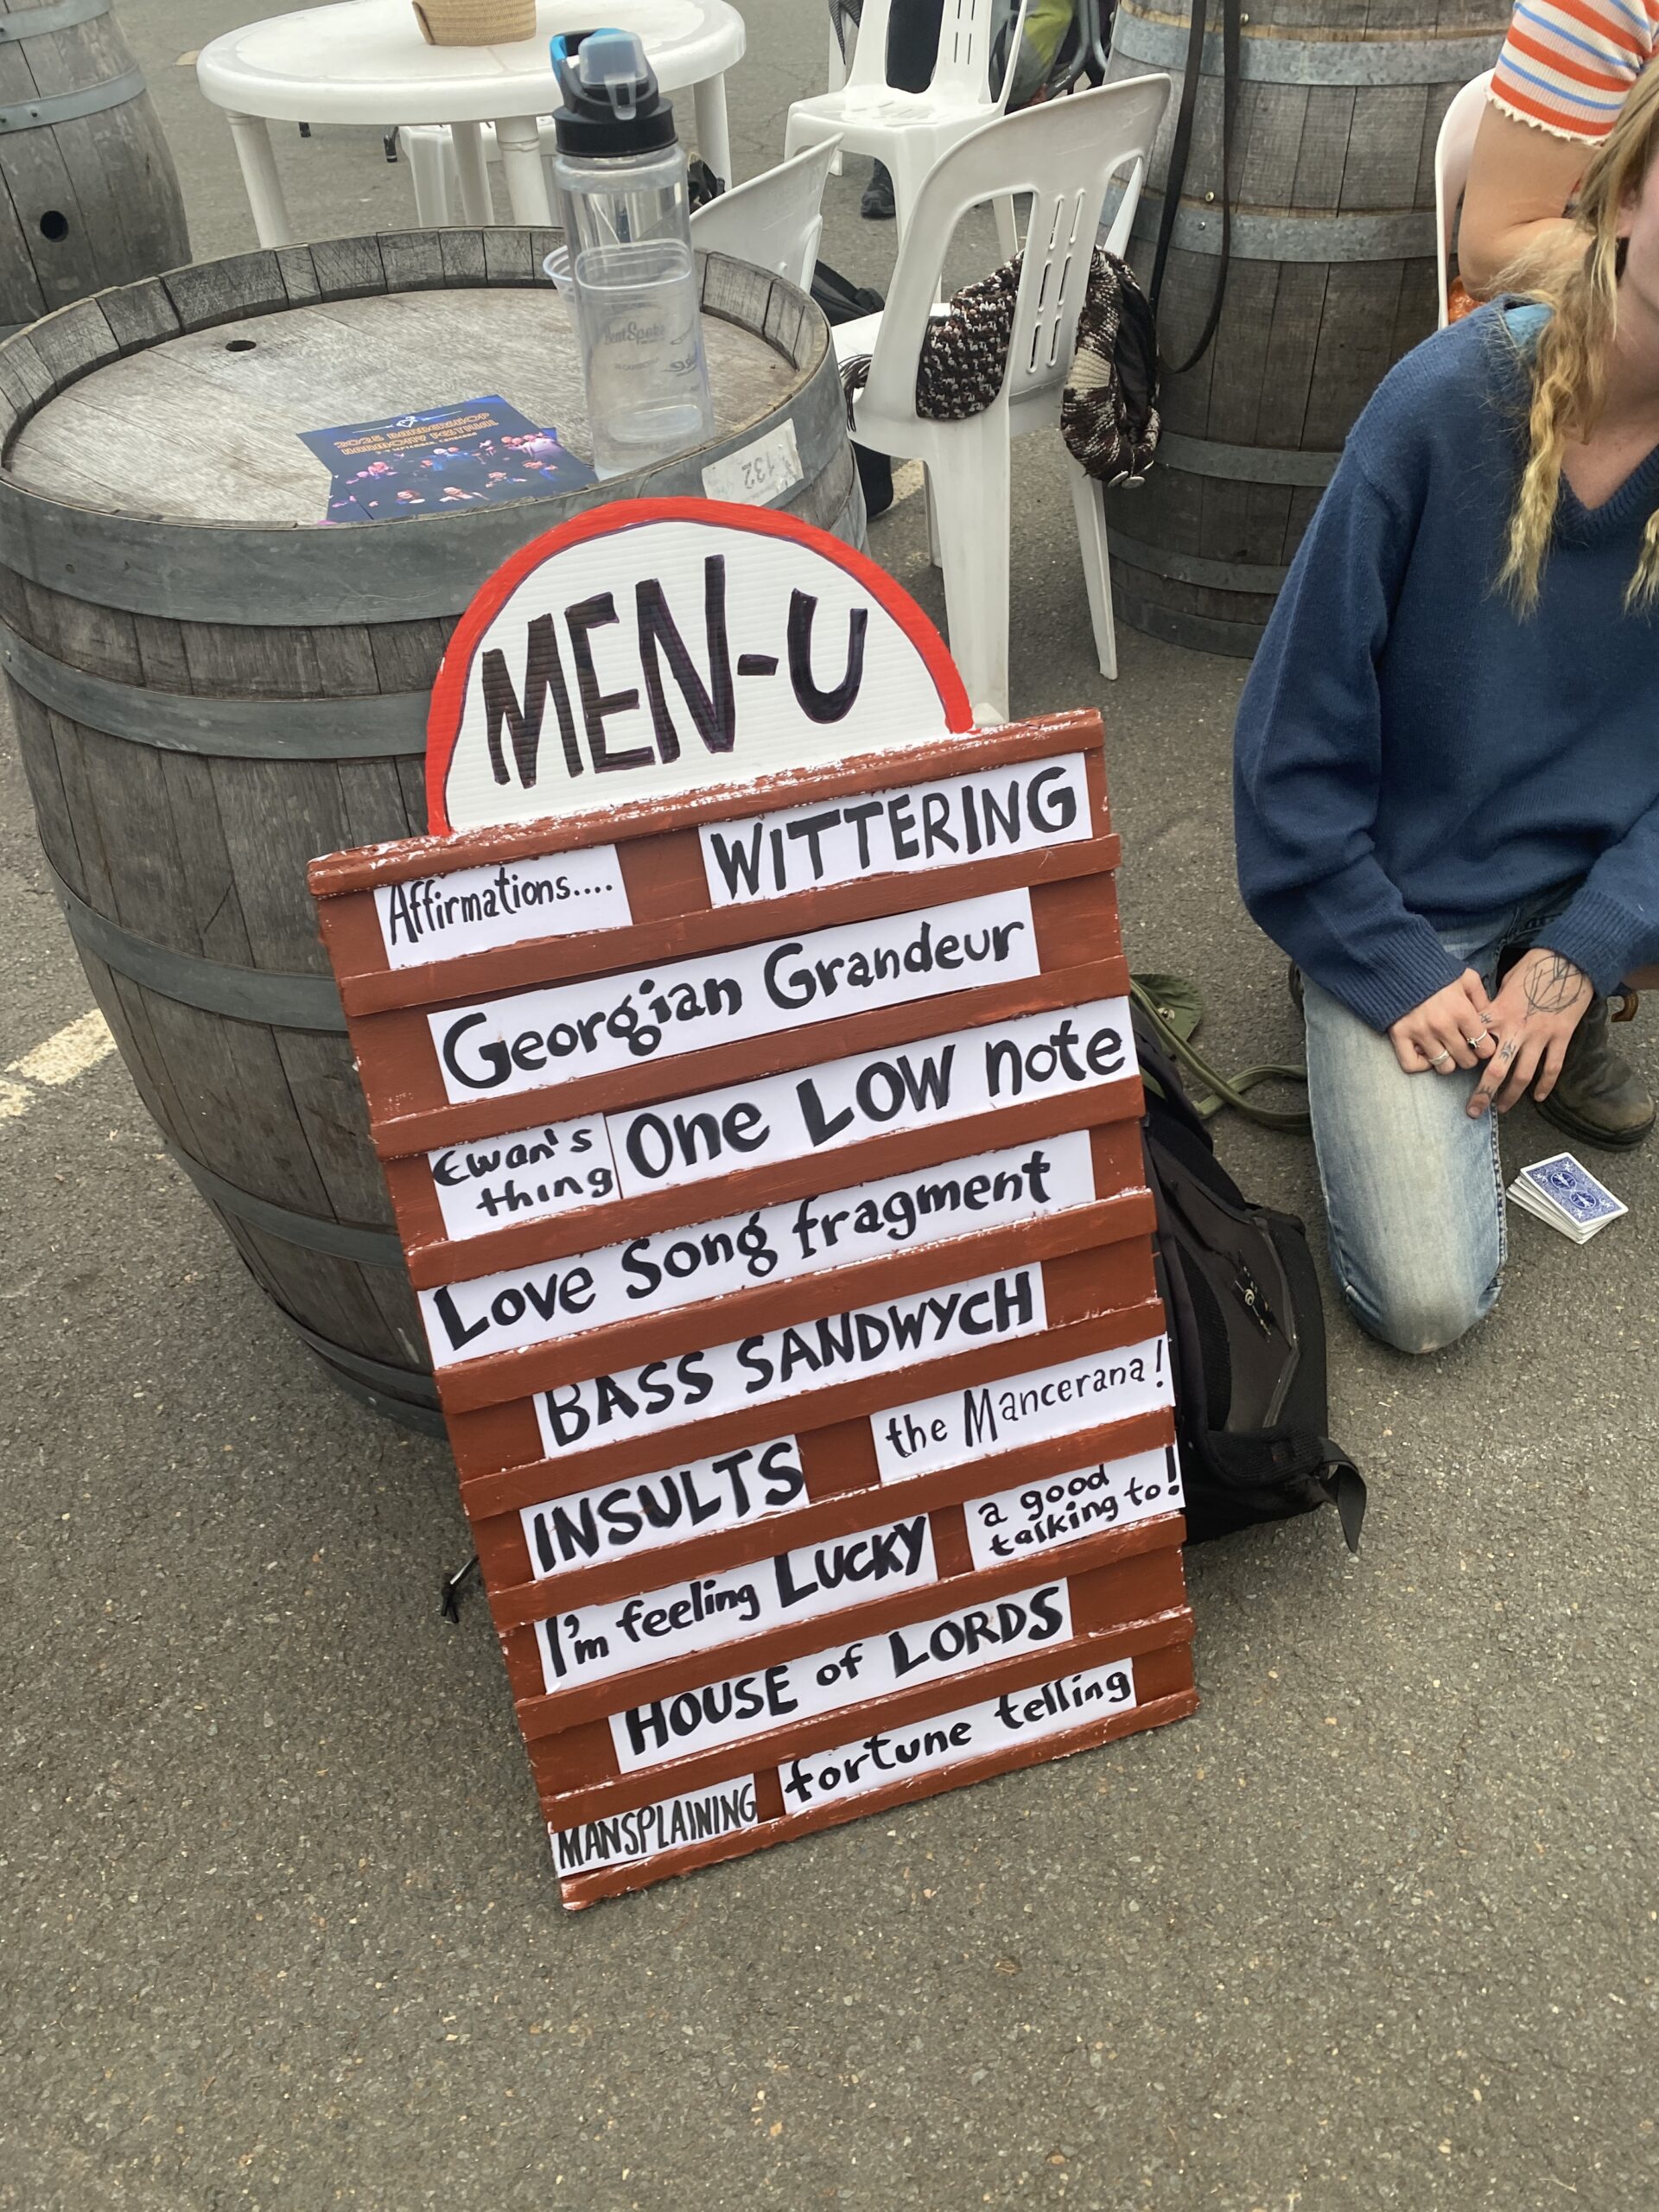 2025 BARBERSHOP
HARMONY FESTIVAL
132
MEN-U
Affirmations.... WITTERING
Georgian Grandeur
Ewan's
thing
One LOW note
Love Song fragment
BASS SANDWYCH
INSULTS the Mancerana!
I'm feeling LUCKY
a good
talking to!
HOUSE of LORDS
MANSPLAINING fortune telling